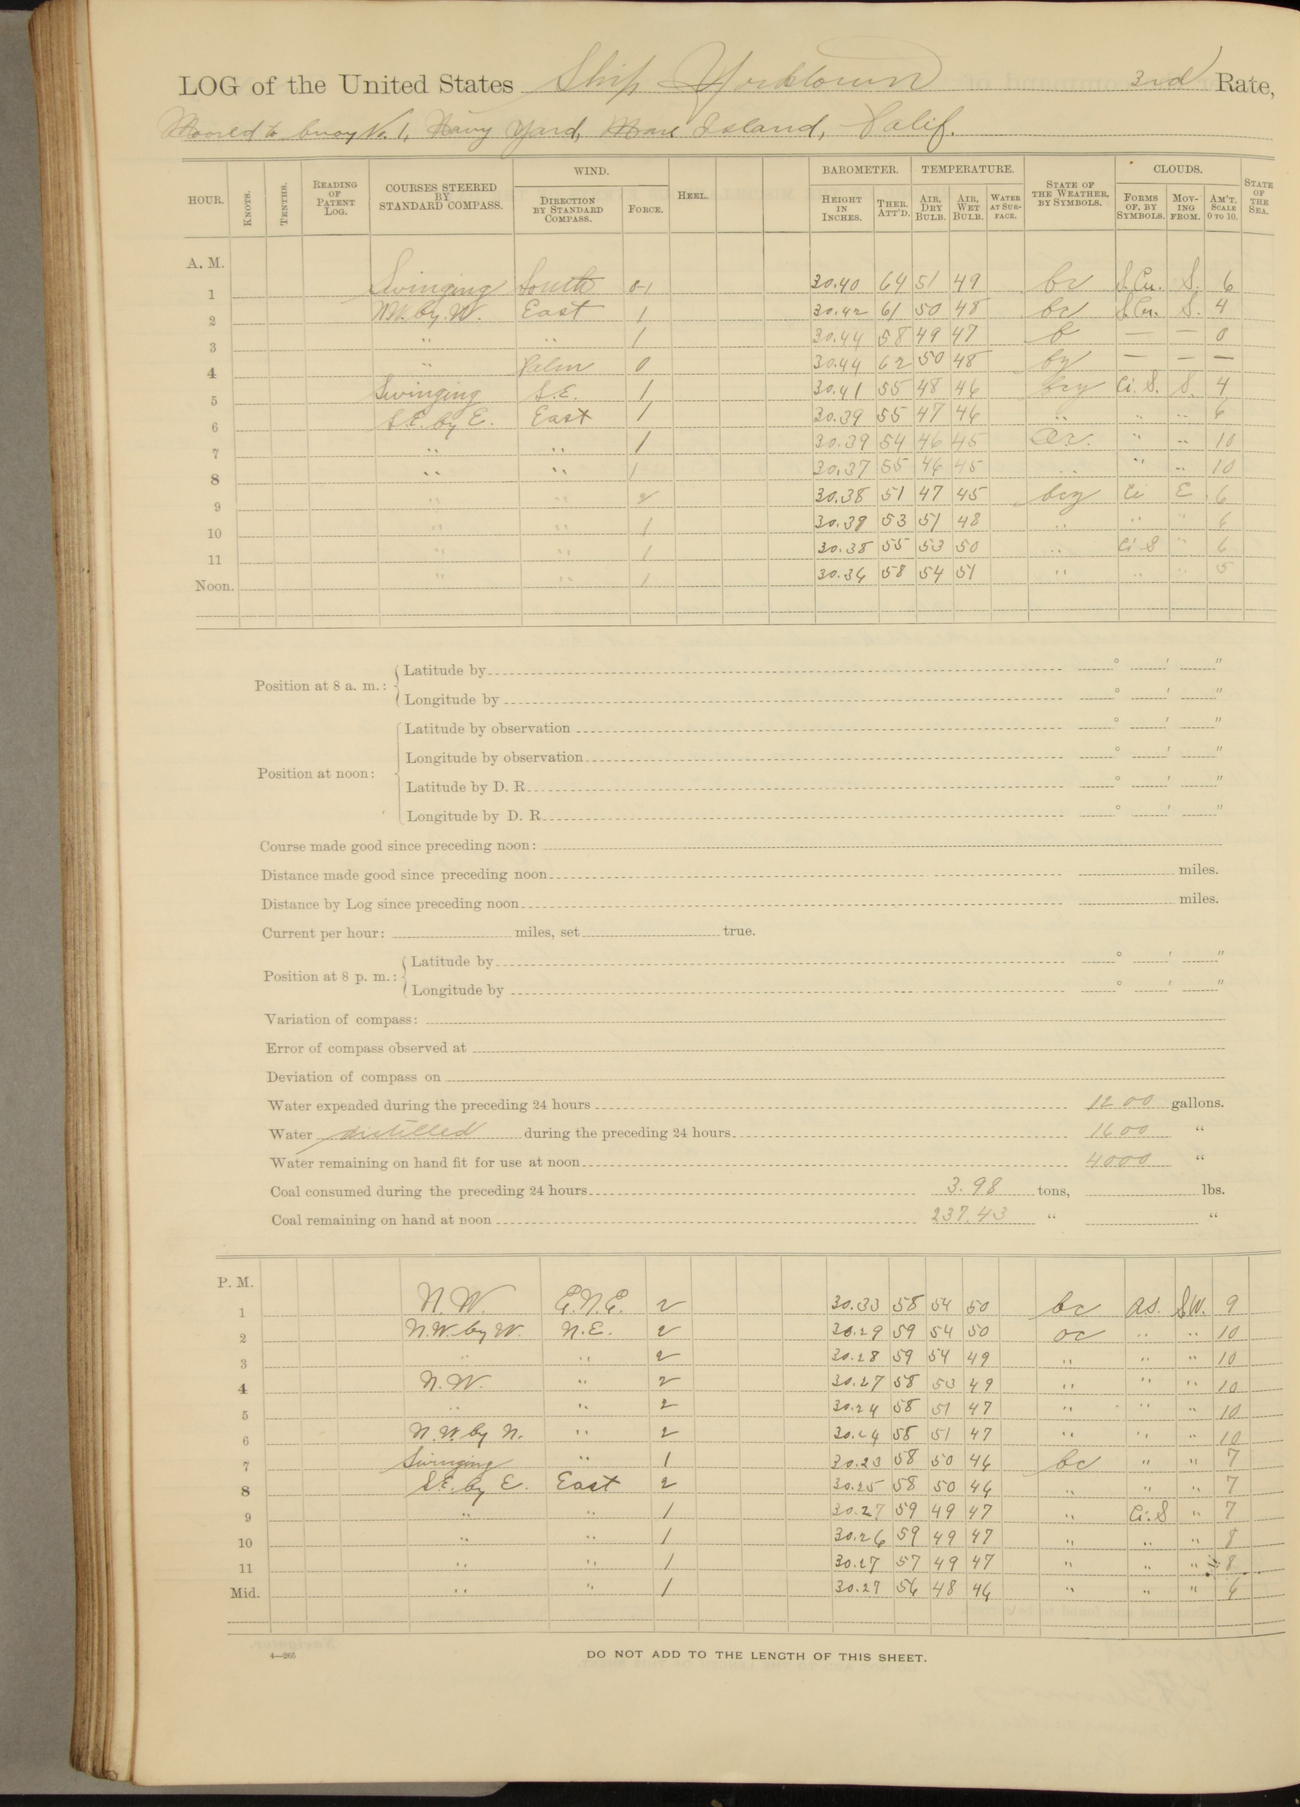 LOG of the United States Ship Yorktown 3rd Rate,
Moored to buoy No. 1, Navy Yard, Mare Island, Calif.
HOUR. KNOTS. TENTHS. READING OF PATENT LOG. COURSES STEERED BY STANDARD COMPASS. WIND. DIRECTION BY STANDARD COMPASS. FORCE. HEEL. BAROMETER. HEIGHT IN INCHES. THER. ATT'D. TEMPERATURE. AIR, DRY BULB. AIR, WET BULB. WATER AT SURFACE. STATE OF THE WEATHER, BY SYMBOLS. CLOUDS. FORMS OF, BY SYMBOLS. MOVING FROM. AM'T, SCALE 0 TO 10. STATE OF THE SEA.
A. M.
1 Swinging South 0-1 30.40 64 51 49 bc S.Cu. S. 6
2 NW. by W. East 1 30.42 61 50 48 bc S.Cu. S. 4
3 " " 1 30.44 58 49 47 b — — 0
4 " Calm 0 30.44 62 50 48 by — — —
5 Swinging S.E. 1 30.41 55 48 46 bcy Ci. S. S. 4
6 S.E. by E. East 1 30.39 55 47 46 " " " 6
7 " " 1 30.39 54 46 45 " " 10
8 " " 1 30.37 55 46 45 " " " 10
9 " " 2 30.38 51 47 45 bcy Ci E 6
10 " " 1 30.39 53 51 48 " " " 6
11 " " 1 30.38 55 53 50 " Ci S " 6
Noon. " " 1 30.36 58 54 51 " " " 5
Position at 8 a. m.: Latitude by ° ' "
Longitude by ° ' "
Position at noon: Latitude by observation ° ' "
Longitude by observation ° ' "
Latitude by D. R. ° ' "
Longitude by D. R. ° ' "
Course made good since preceding noon:
Distance made good since preceding noon miles.
Distance by Log since preceding noon miles.
Current per hour: miles, set true.
Position at 8 p. m.: Latitude by ° ' "
Longitude by ° ' "
Variation of compass:
Error of compass observed at
Deviation of compass on
Water expended during the preceding 24 hours 1200 gallons.
Water distilled during the preceding 24 hours 1600 "
Water remaining on hand fit for use at noon 4000 "
Coal consumed during the preceding 24 hours 3.98 tons, lbs.
Coal remaining on hand at noon 237.43 " "
P. M.
1 N.W. E.N.E. 2 30.33 58 54 50 bc AS. SW. 9
2 N.W. by W. N.E. 2 30.29 59 54 50 oc " " 10
3 " " 2 30.28 59 54 49 " " " 10
4 N.W. " 2 30.27 58 53 49 " " " 10
5 " " 2 30.24 58 51 47 " " " 10
6 N.W. by N. " 2 30.24 58 51 47 " " " 10
7 Swinging " 1 30.23 58 50 46 bc " " 7
8 S.E. by E. East 2 30.25 58 50 46 " " " 7
9 " " 1 30.27 59 49 47 " Ci. S " 7
10 " " 1 30.26 59 49 47 " " " 8
11 " " 1 30.27 57 49 47 " " " 8
Mid. " " 1 30.27 56 48 46 " " " 6
4—265
DO NOT ADD TO THE LENGTH OF THIS SHEET.